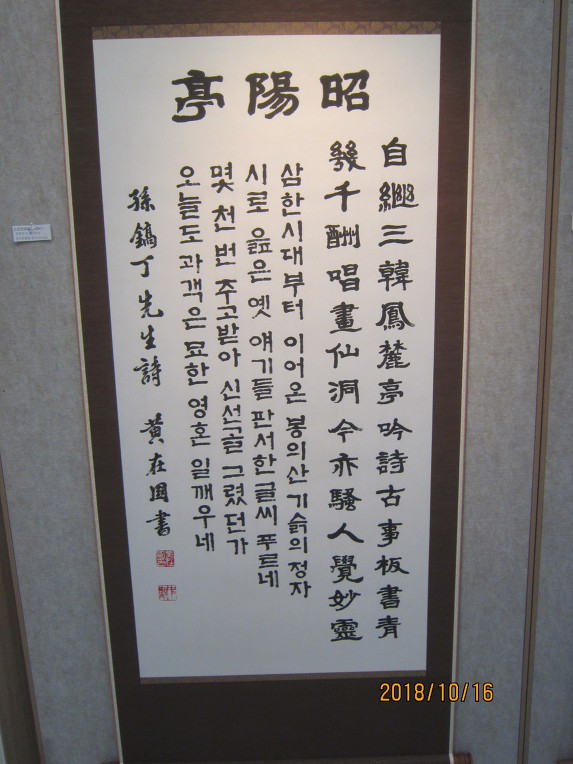 昭陽亭
自繼三韓鳳麓亭吟詩古事板書青
幾千酬唱畫仙洞今亦騷人覺妙靈
삼한시대부터 이어온 봉의산 기슭의 정자
시로 읊은 옛 얘기들 판서한 글씨 푸르네
몇 천 번 주고받아 신선골 그렸던가
오늘도 과객은 묘한 영혼 일깨우네
孫鎬丁先生詩 黃在國書
2018/10/16